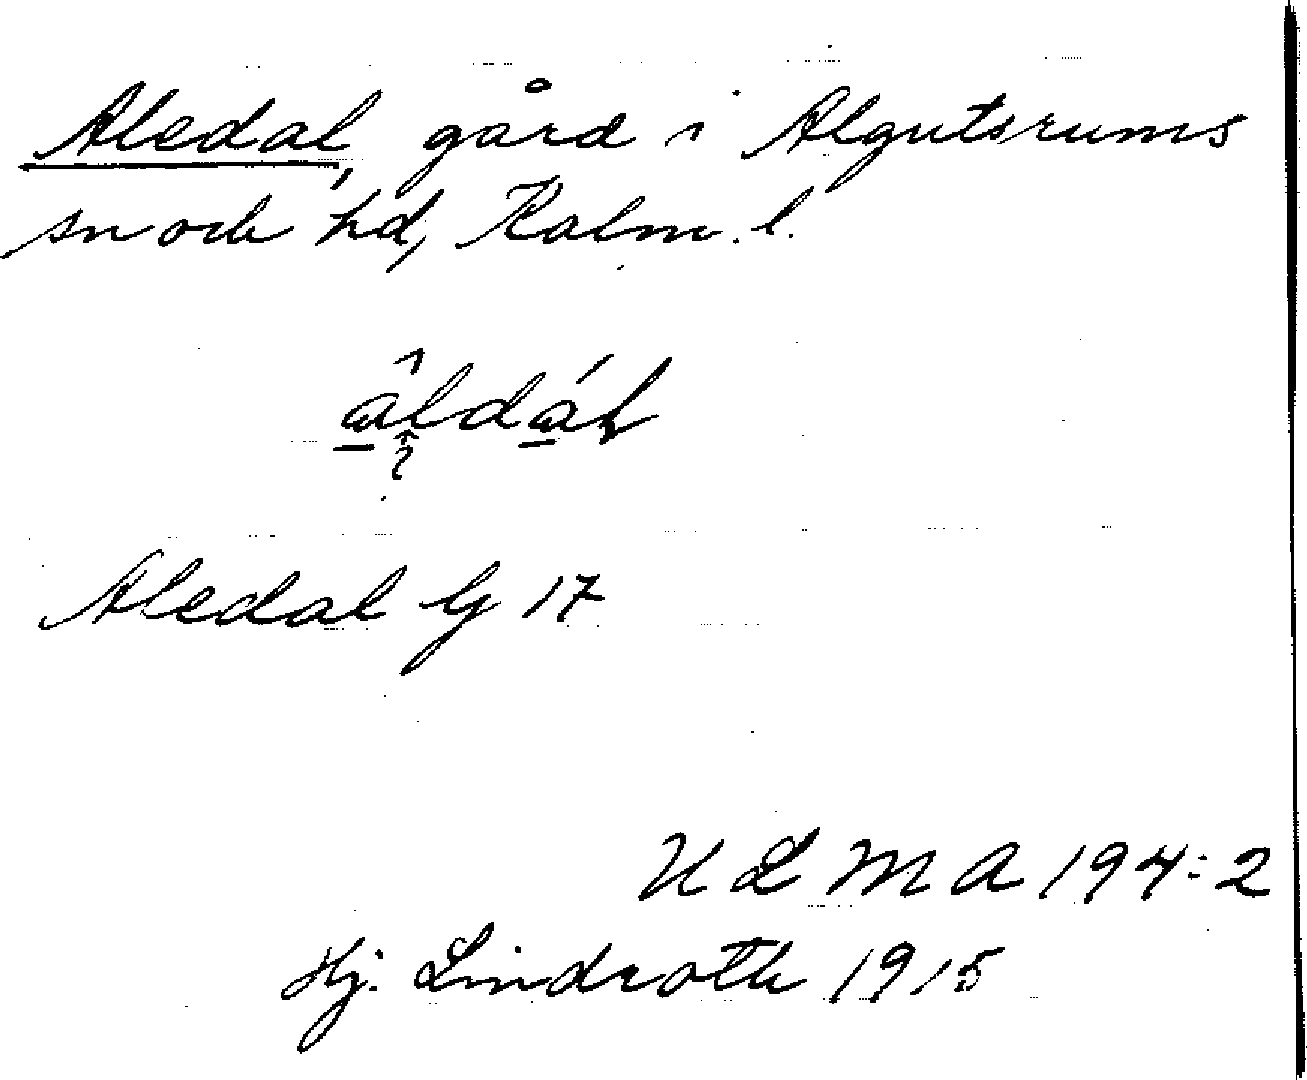 Aledal, gård i Algutsrums
sn och hd, Kalm. l.
Aledal G 17
ULMA 194:2
Hj. Lindroth 1915